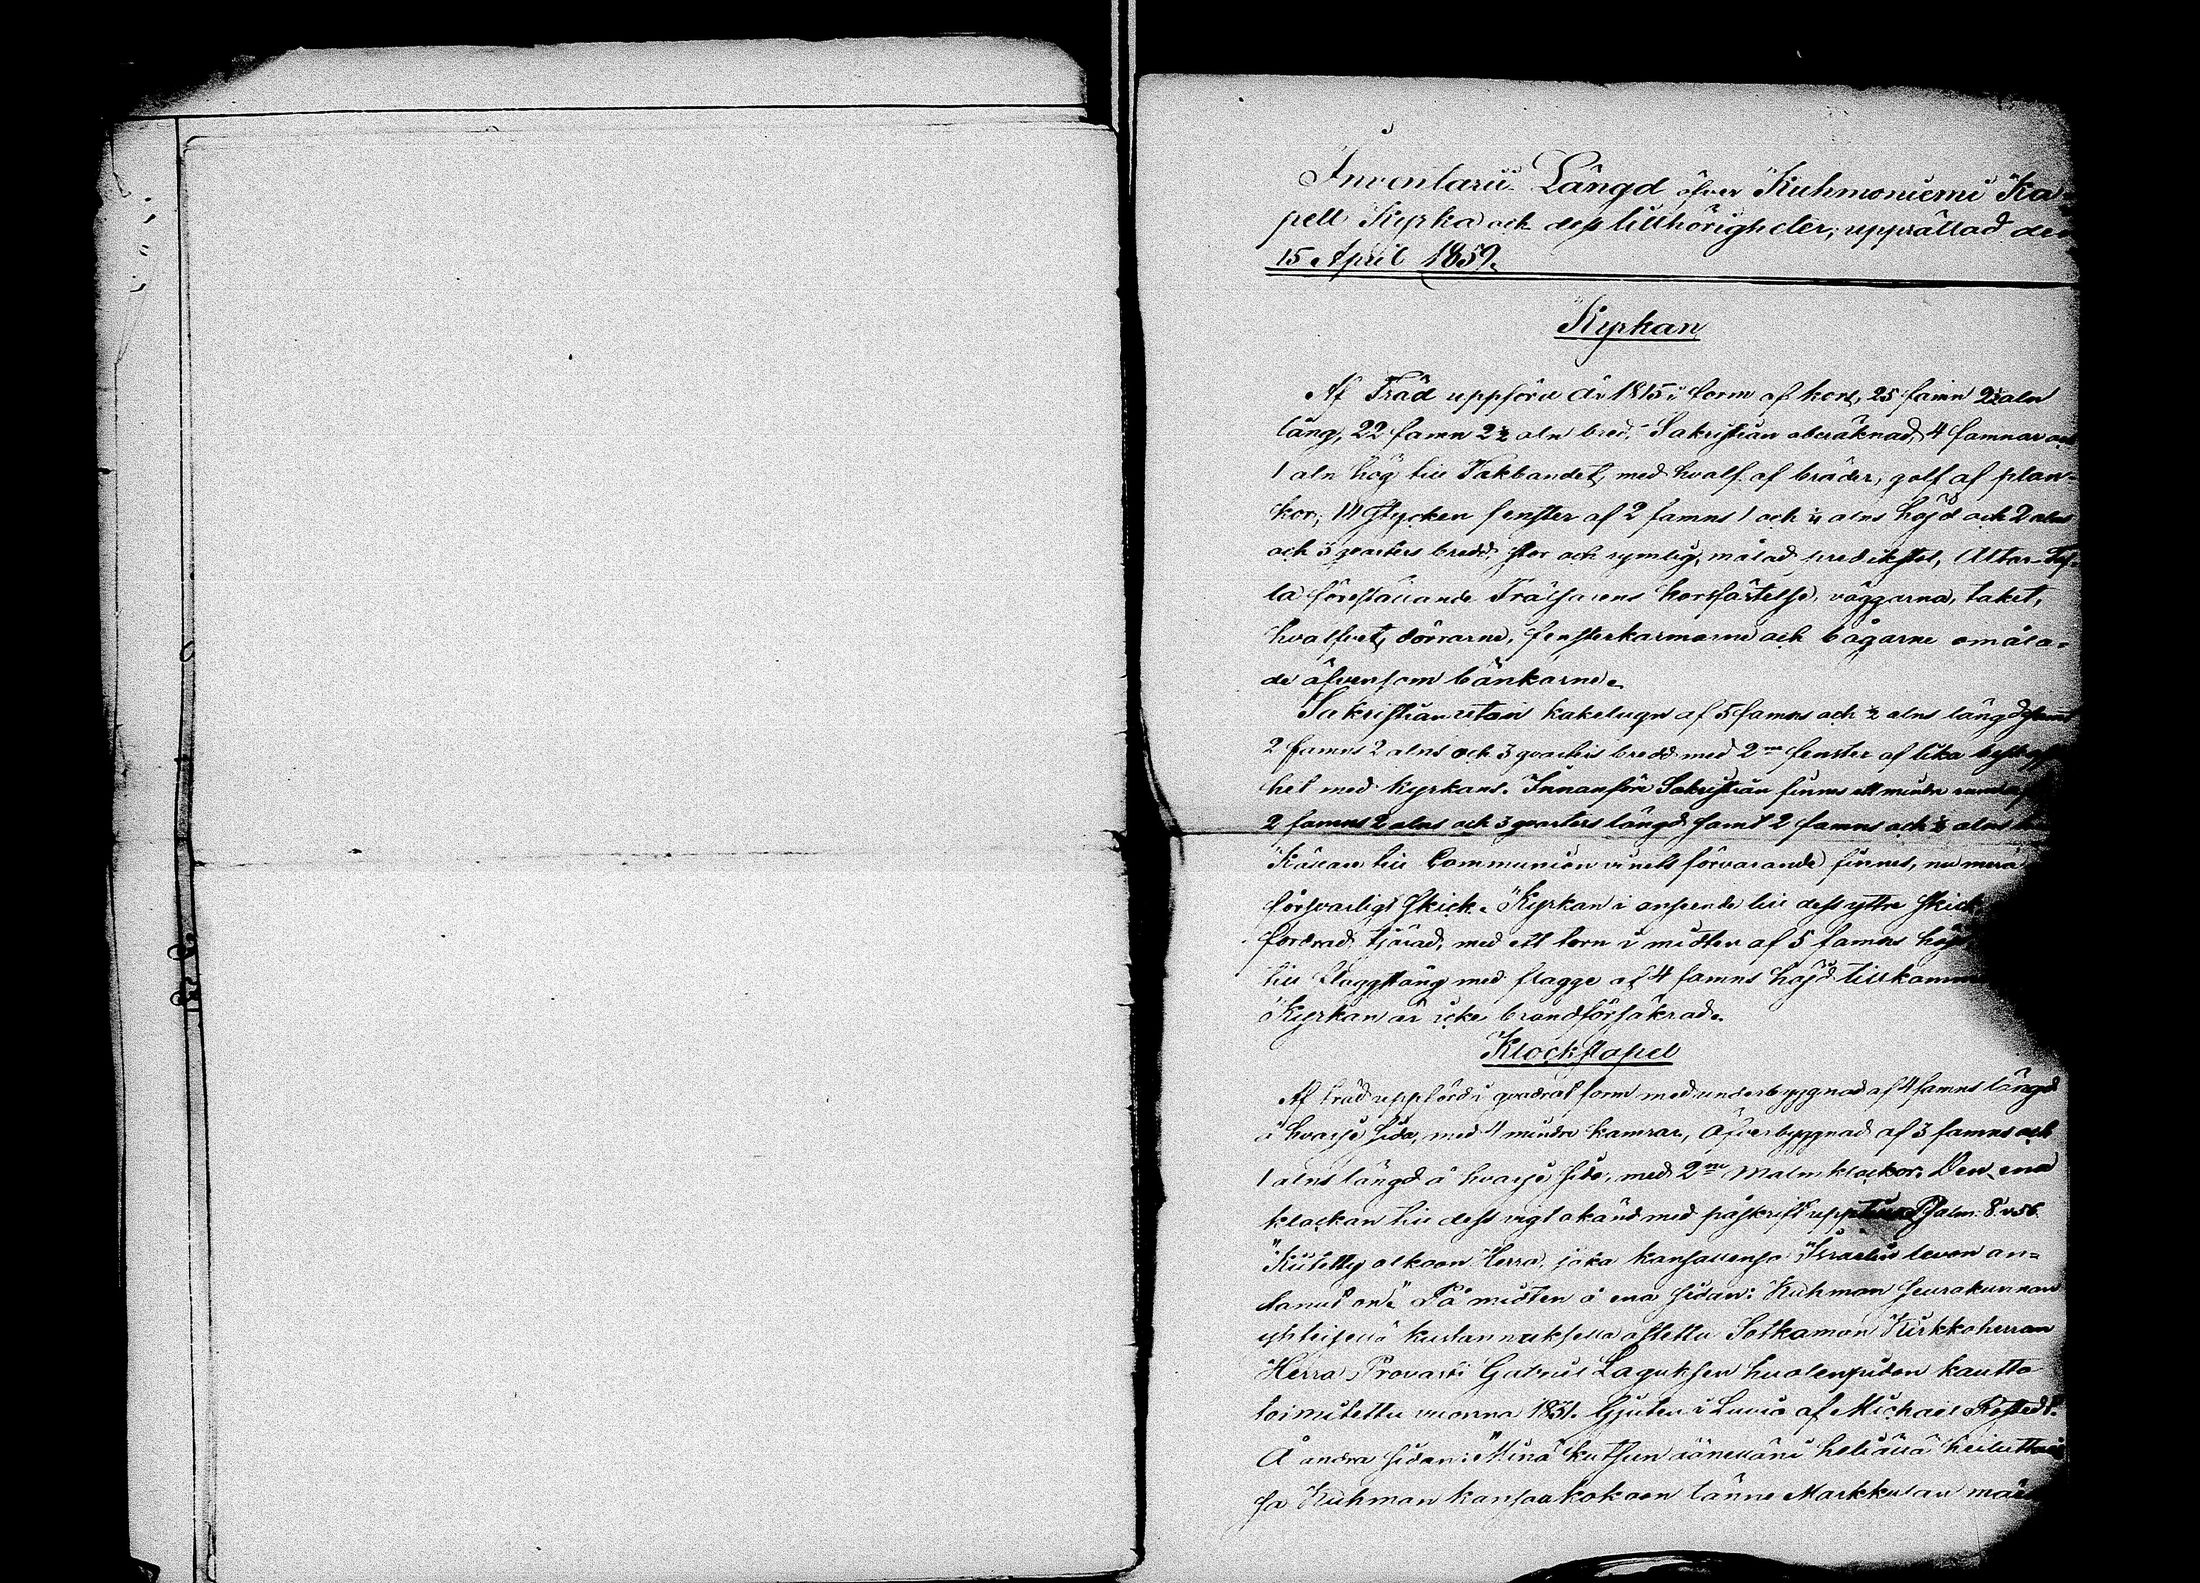 Inventarii Längd öfver Kuhmoniemi Ka-
pell Kyrka och dess tillhörigheter, upprättad den
15 April 1859.
Kyrkan
Af Träd uppförd år 1815 i form af kors, 25 famn 2½ aln
lång, 22 famn 2½ aln bred, Sakristian oberäknad, 4 famnar och
1 aln hög till Takbandet, med hvalf af bräder, golf af plan-
kor, 14 stycken fenster af 2 famns 1 och ¼ alns höjd och 2 alns
och 3 qvarters bredd, stor och rymlig, målad predikstol, Altar-Taf-
la föreställande Frälsarens korsfästelse, väggarna, taket,
hvalfvet, dörrarne, fensterkarmarne och bågarne omåla-
de äfvensom bänkarne.
Sakristian utan kakelugn af 5 famns och ½ alns längd samt
2 famns 2 alns och 3 qvarters bredd med 2ne fenster af lika
het med kyrkans. Innanföre Sakristian finnes ett mindre
2 famns 2 alns och 3 qvarters längd samt 2 famns och ½ alns
Källare till Communion vinets förvarande finnes, nu mera
försvarligt skick. Kyrkan i anseende till dess yttre skick
fordrad, tjärad, med ett torn i midten af 5 famns höjd
till flaggstång med flagge af 4 famns höjd tillkommer
Kyrkan är icke brandförsäkrad.
Klockstapel
Af träd uppförd i qvadrat form med underbyggnad af 4 famns längd
å hvarje sida, med 4 mindre kamrar, Öfverbyggnad af 3 famns och
1 alns längd å hvarje sida, med 2ne Malmklockor. Den ena
klockan till dess vigt okänd med påskrift upptill Psalm: 8 v 56
"Kiitetty olkoon Herra, joka kansallensa Israelin levon an-
tanut on". På midten å ena sidan: Kuhmon seurakunnan
yhteisellä kustannuksella ostettu Sotkamon Kirkkoherran
Herra Provasti Gabriel Laguksen huolenpidon kautta
toimitettu vuonna 1831. Gjuten i Lovisa af Michael
Å andra sidan: "Minä kutsun äänelläni heliällä
sa Kuhmon kansaa kokoon tänne Markkulan